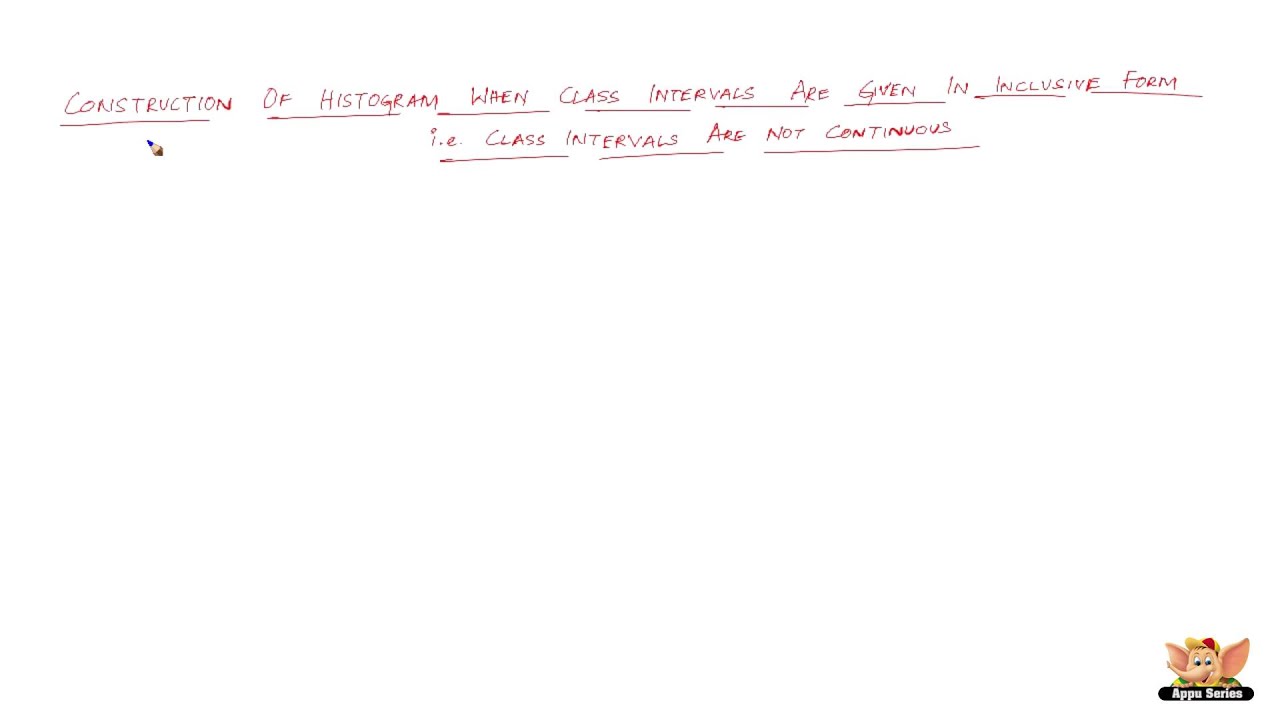 CONSTRUCTION OF HISTOGRAM WHEN CLASS INTERVALS ARE GIVEN IN INCLUSIVE FORM
i.e. CLASS INTERVALS ARE NOT CONTINUOUS
Appu Series